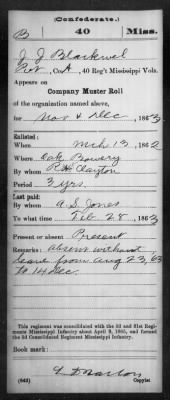 (Confederate.)
B 40 Miss.
J J Blackwel
Pvt, Co. A, 40 Reg't Mississippi Vols.
Appears on
Company Muster Roll
of the organization named above,
for Nov & Dec, 1863
Enlisted:
When Mch 13, 1862
Where Oak Bowery
By whom R. H. Clayton
Period 3 yrs.
Last paid:
By whom A. S. Jones
To what time Feb. 28, 1863
Present or absent Present
Remarks: Absent without
leave from Aug 23, 63
to 14 Dec.
This regiment was consolidated with the 3d and 31st Regiments Mississippi Infantry about April 9, 1865, and formed
the 3d Consolidated Regiment Mississippi Infantry.
Book mark:
(642) Copyist.